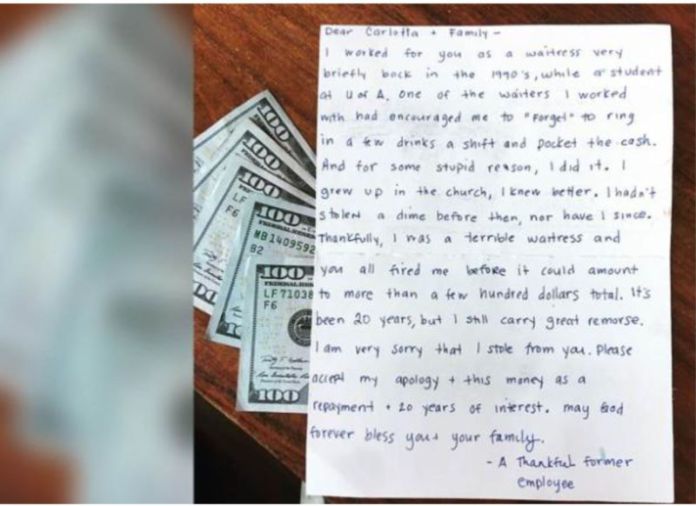 Dear Carlotta + Family -
I worked for you as a waitress very
briefly back in the 1990's, while a student
at U of A. One of the waiters I worked
with had encouraged me to "Forget" to ring
in a few drinks a shift and pocket the cash.
And for some stupid reason, I did it. I
grew up in the church, I knew better. I hadn't
stolen a dime before then, nor have I since.
Thankfully, I was a terrible waitress and
you all fired me before it could amount
to more than a few hundred dollars total. It's
been 20 years, but I still carry great remorse.
I am very sorry that I stole from you. Please
accept my apology + this money as a
repayment + 20 years of interest. may God
forever bless you + your family.
- A Thankful former
employee
100
100
100
LF
F6
100
MB1409592
B2
100
LF7103
F6
100